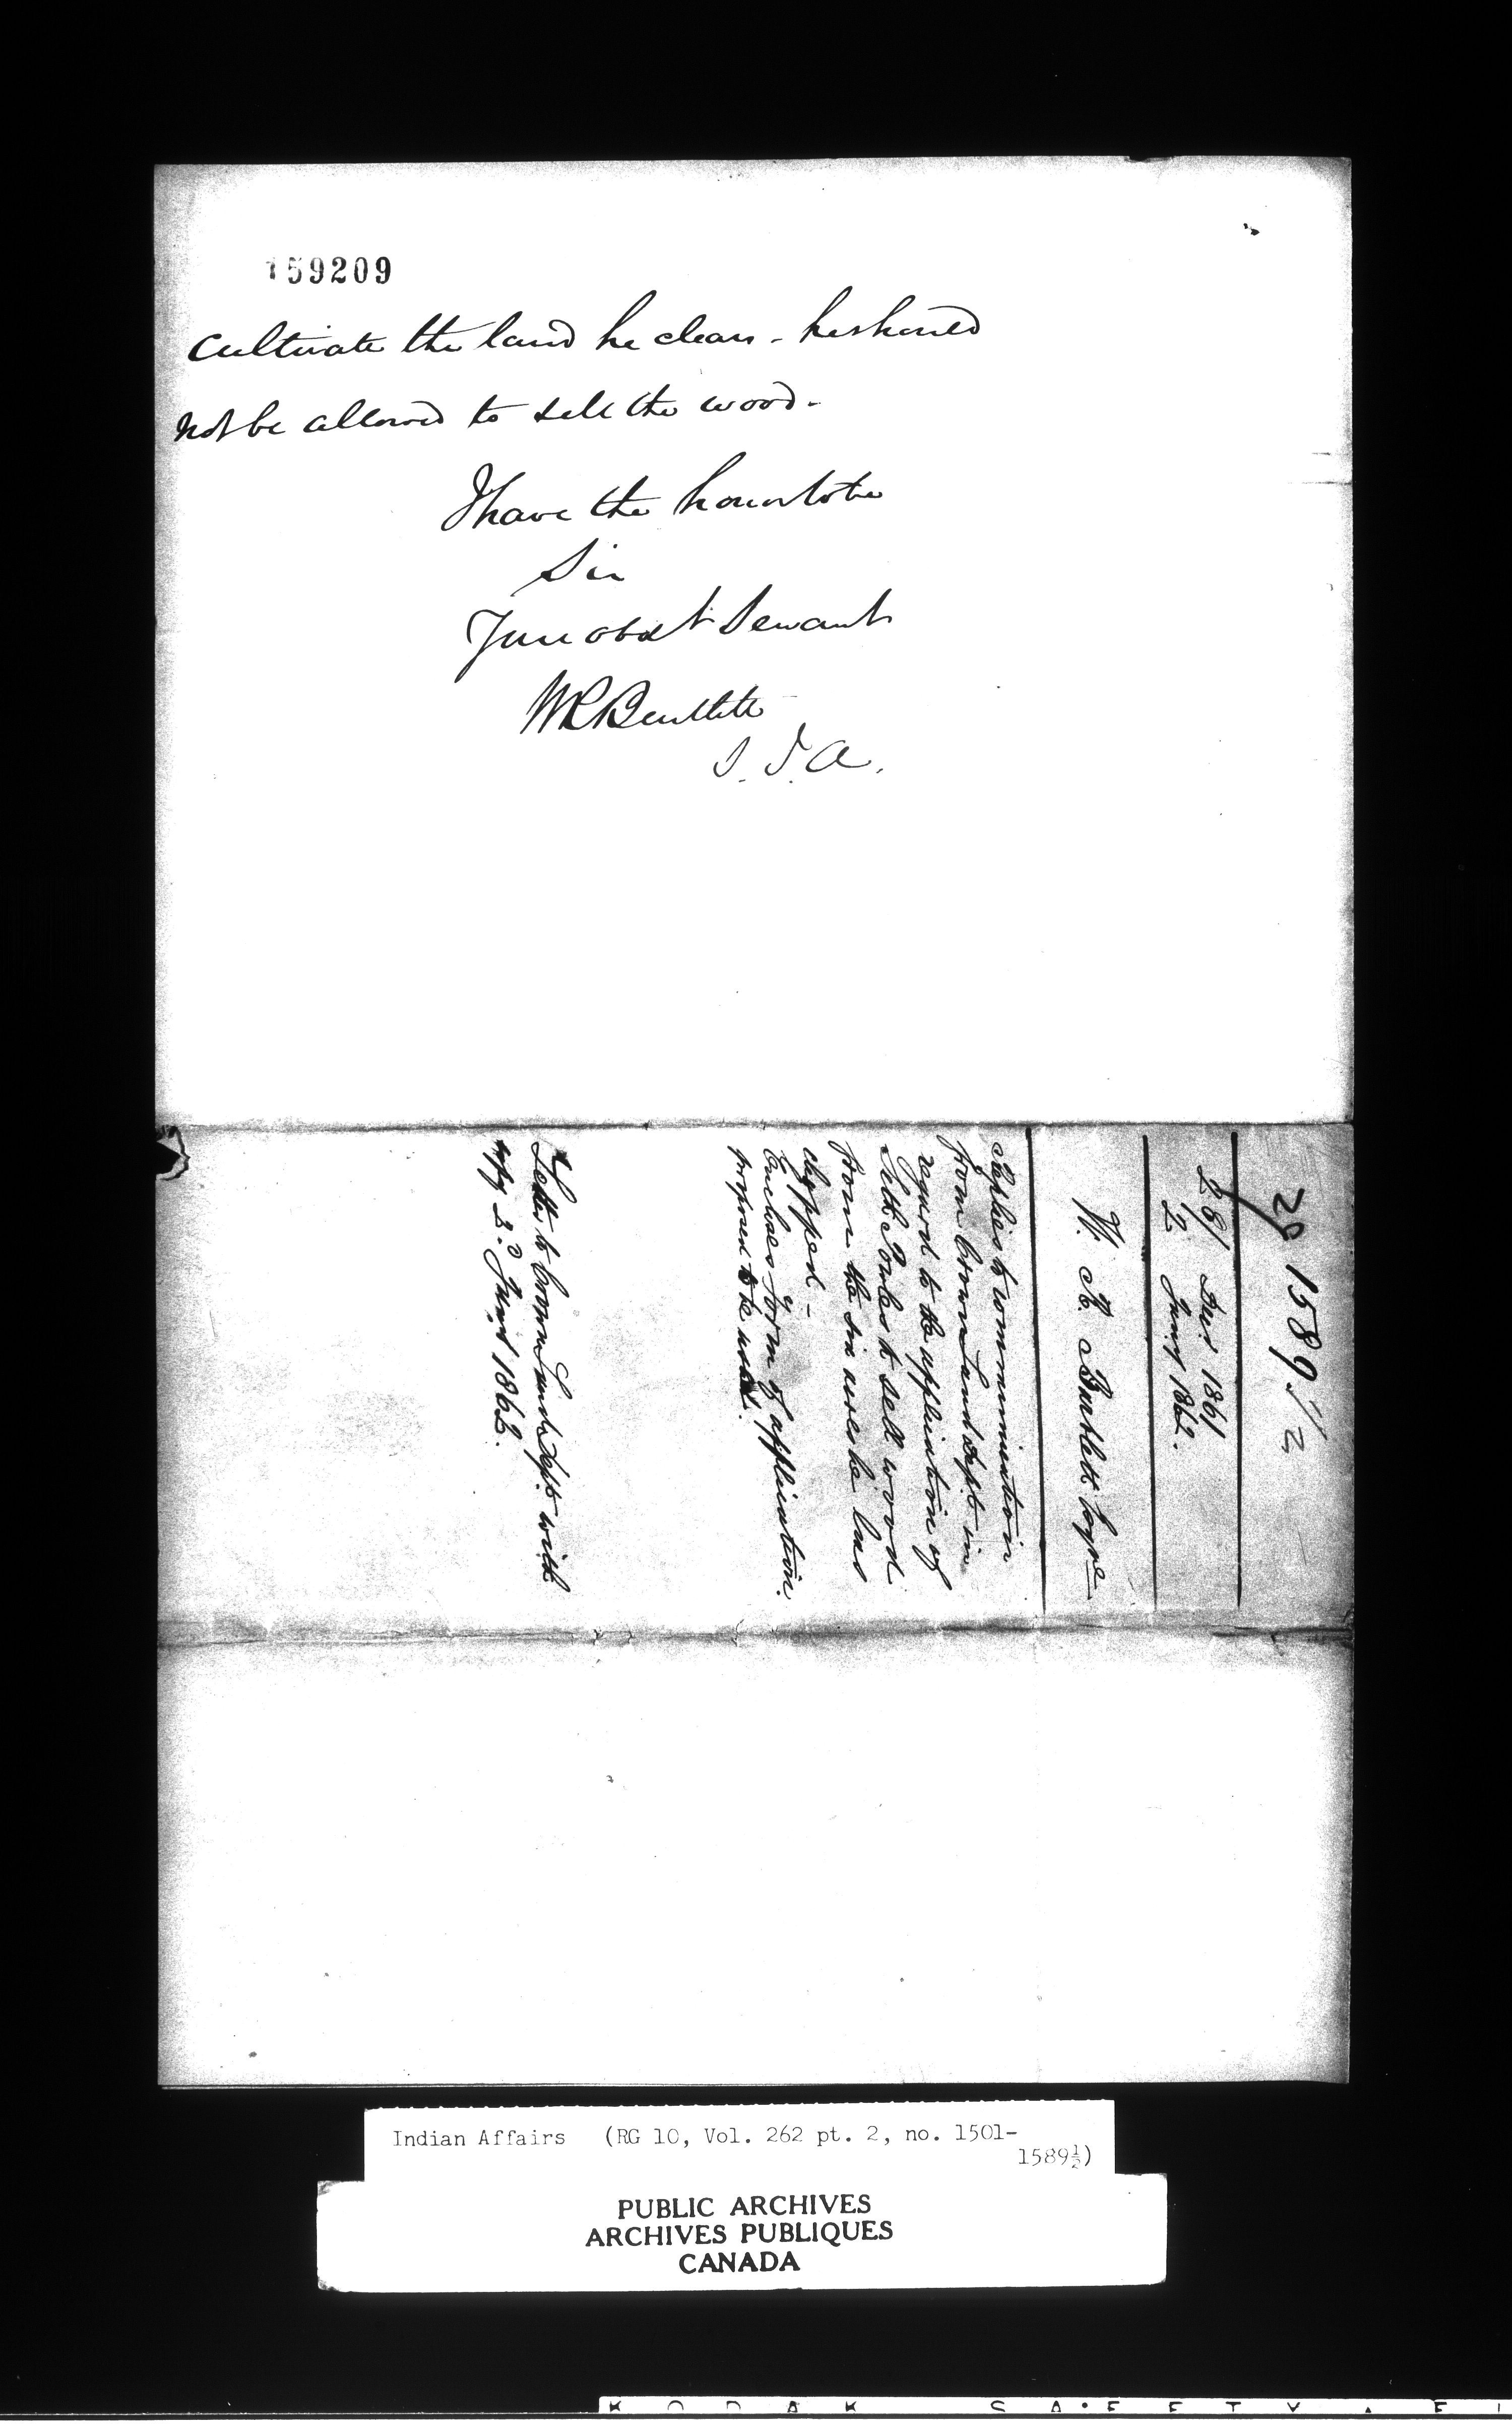 159209
Cultivate the land he clears - he should
not be allowed to sell the wood -
I have the honor to be
Sir
Your obedt Servant
WRBartlett
S. I. A.
29 1589 1/2
28/ Dec 1861
2 Jany 1862.
W. R. Bartlett Esqre
Replies to communication
from Crown Land Dept in
regard to the application of
Seth to sell wood
from the six acres he has
chopped -
Encloses form of application
proposed to be used.
Letter to Crown Lands Dept. with
copy 2d Jany 1862.
Indian Affairs (RG 10, Vol. 262 pt. 2, no. 1501-
1589½)
PUBLIC ARCHIVES
ARCHIVES PUBLIQUES
CANADA
KODAK SAFETY